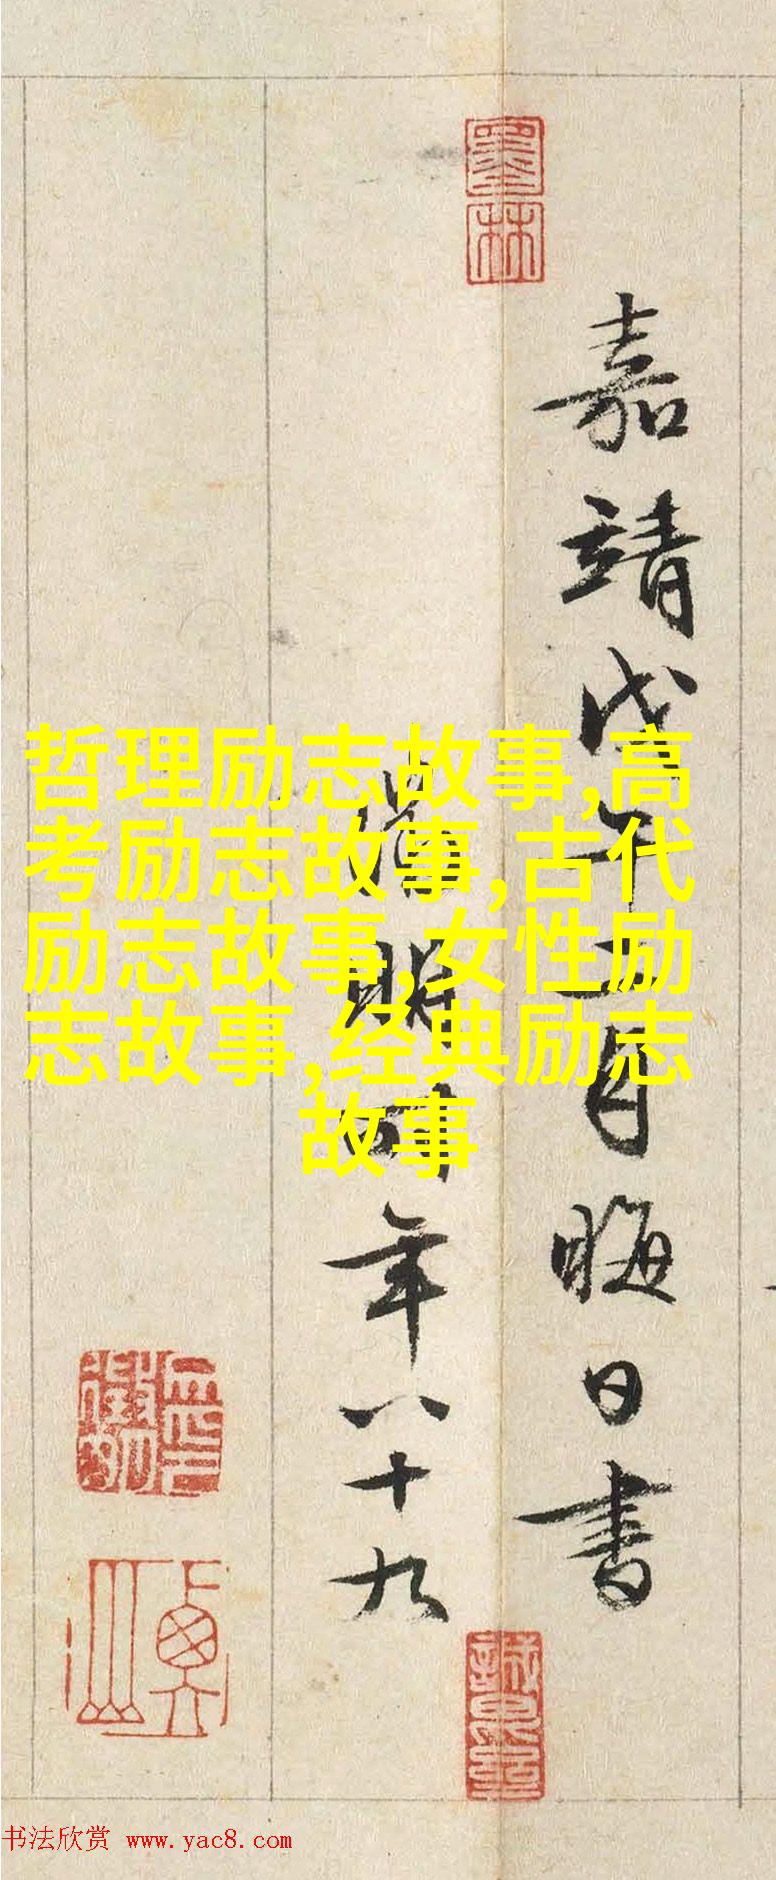 嘉靖戊午二月晦日書
徵明時年八十九
墨林
哲理励志故事,高
考励志故事,古代
励志故事,女性励
志故事,经典励志
故事
书法欣赏 www.yac8.com